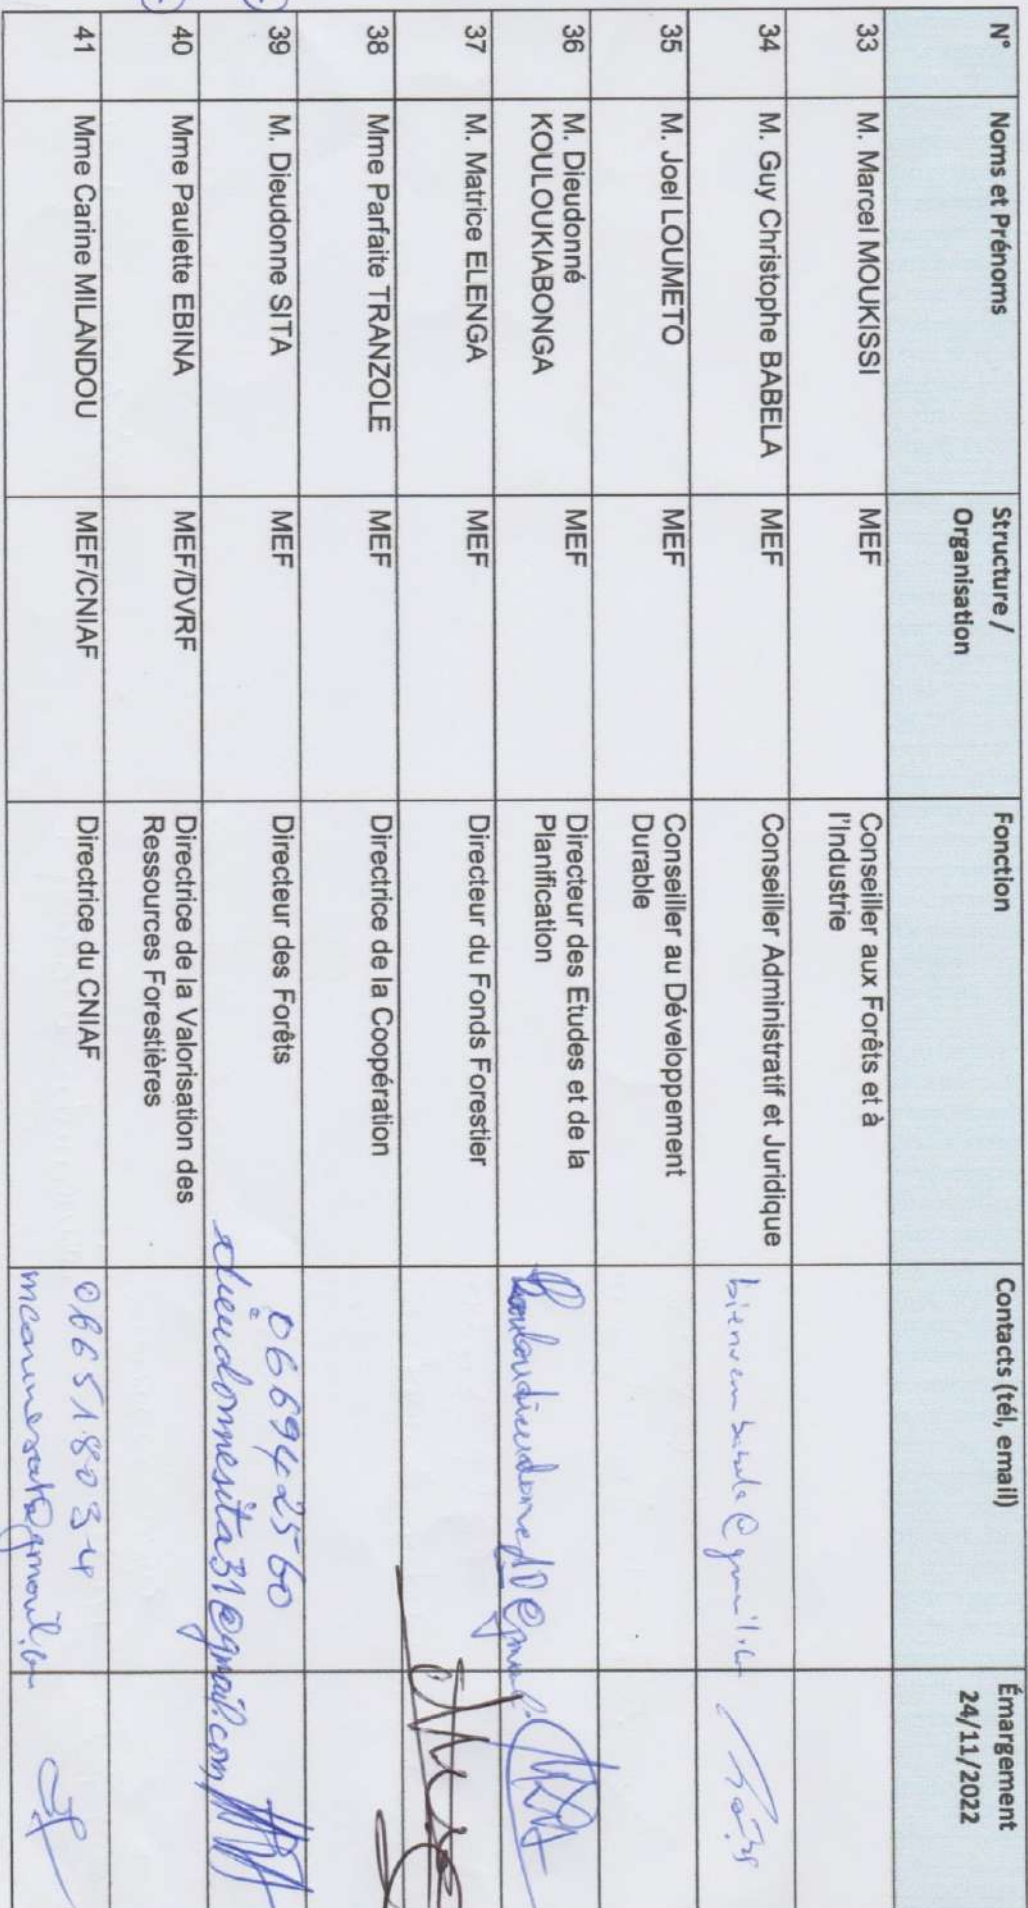 N° Noms et Prénoms Structure / Organisation Fonction Contacts (tél, email) Émargement 24/11/2022
33 M. Marcel MOUKISSI MEF Conseiller aux Forêts et à l'Industrie
34 M. Guy Christophe BABELA MEF Conseiller Administratif et Juridique
35 M. Joel LOUMETO MEF Conseiller au Développement Durable
36 M. Dieudonné KOULOUKIABONGA MEF Directeur des Etudes et de la Planification
37 M. Matrice ELENGA MEF Directeur du Fonds Forestier
38 Mme Parfaite TRANZOLE MEF Directrice de la Coopération
39 M. Dieudonne SITA MEF Directeur des Forêts 066942560 dieudonnesita31@gmail.com
40 Mme Paulette EBINA MEF/DVRF Directrice de la Valorisation des Ressources Forestières
41 Mme Carine MILANDOU MEF/CNIAF Directrice du CNIAF 066518034